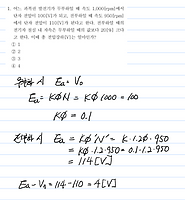 1. 어느 과복권 발전기가 무부하일 때 속도 1,000[rpm]에서
단자 전압이 100[V]가 되고, 전부하일 때 속도 950[rpm]
에서 단자 전압이 110[V]가 된다고 한다. 전부하일 때의
전기자 철손 내 자속은 무부하일 때의 값의 20% 많다고
한다. 이때 총 전압강하[V]는 얼마인가?
① 1
② 2
③ 3
④ 4
무부하 시 Ea = V₀
Ea = KØN = KØ 1000 = 100
KØ = 0.1
전부하 시 Ea = KØ'N' = K·1.2Ø·950
= KØ·1.2·950 = 0.1·1.2·950
= 114[V]
Ea - Vn = 114-110 = 4[V]